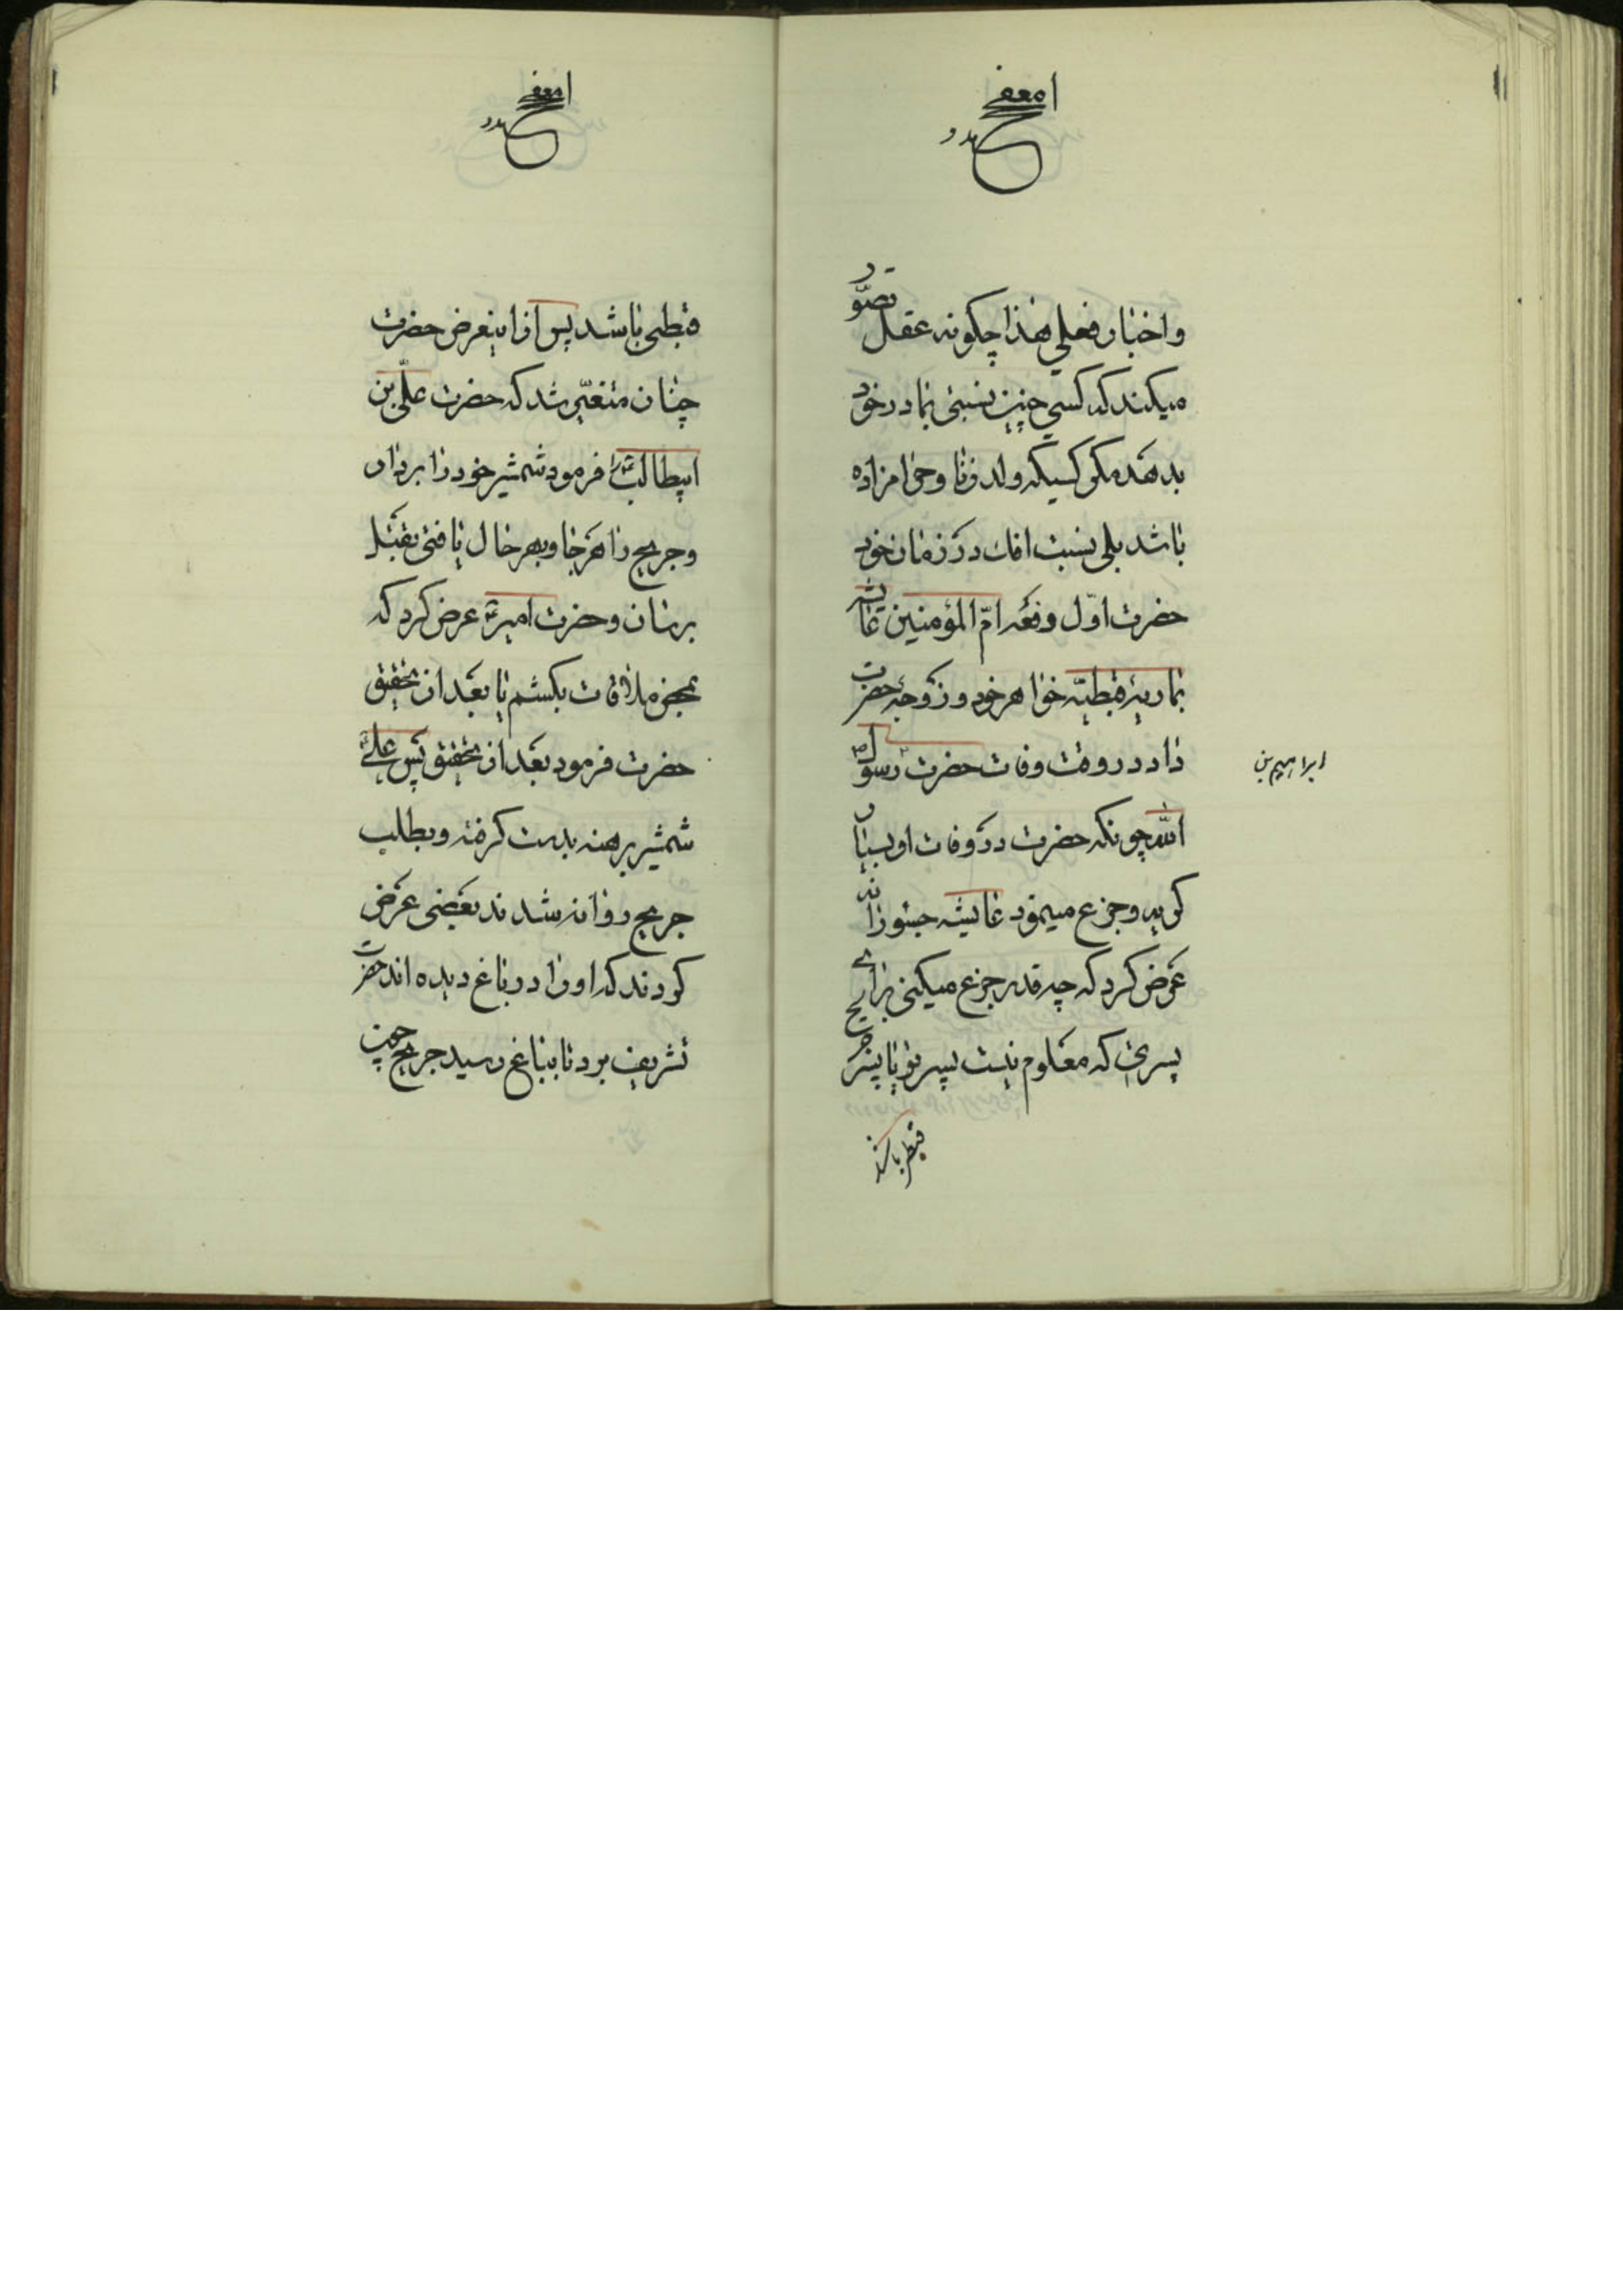 واخبار فعلی هذا چگونه عقل تصوّر
میکند که کسی چنین نسبتی بمادر خود
بدهد مگر کسیکه ولد زنا و حرامزاده
باشد بلی نسبت افك در زمان خود
حضرت اوّل وقعه امّ المؤمنین عایشه
بماریهٔ قبطیّه خواهر خود و زوجهٔ حضرت
داد در وقت وفات حضرت رسول
ابراهیم بن
اللّه چونکه حضرت در وفات او بسیار
گریه و جزع مینمود عایشه جسورانه
عرض کرد که چه قدر جزع میکنی برای
پسری که معلوم نیست پسر تو یا پسر جریح
قبطی باشد
قبطی باشد پس از اینعرض حضرت
چنان متغیّر شد که حضرت علیّ بن
ابیطالب را فرمود شمشیر خود را بردار
و جریح را هر جا و بهر حال یافتی بقتل
برسان و حضرت امیر عرض کرد که
بمحض ملاقات بکشم یا بعد از تحقیق
حضرت فرمود بعد از تحقیق پس علی
شمشیر برهنه بدست گرفته و بطلب
جریح روانه شدند بعضی عرض
کردند که او را در باغ دیده اند حضرت
تشریف برد تا بباغ رسید جریح چون